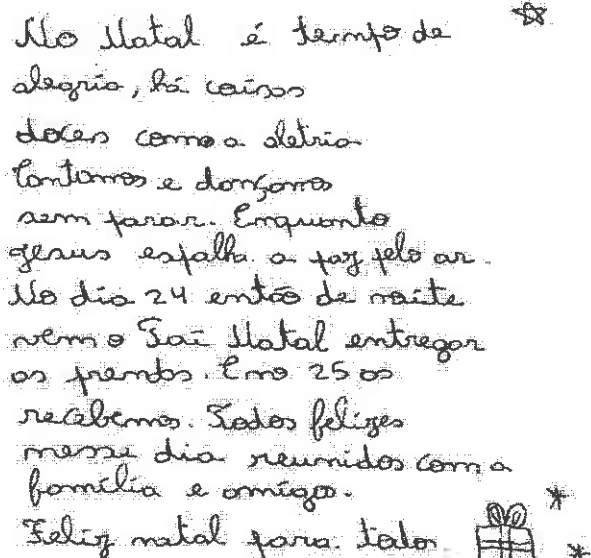 No Natal é tempo de
alegria, há coisas
doces como a aletria
Cantamos e dançamos
sem parar. Enquanto
Jesus espalha a paz pelo ar.
No dia 24 então de noite
vem o Pai Natal entregar
as prendas. E no 25 os
recebemos. Todos felizes
nesse dia reunidos com a
família e amigos.
Feliz natal para todos